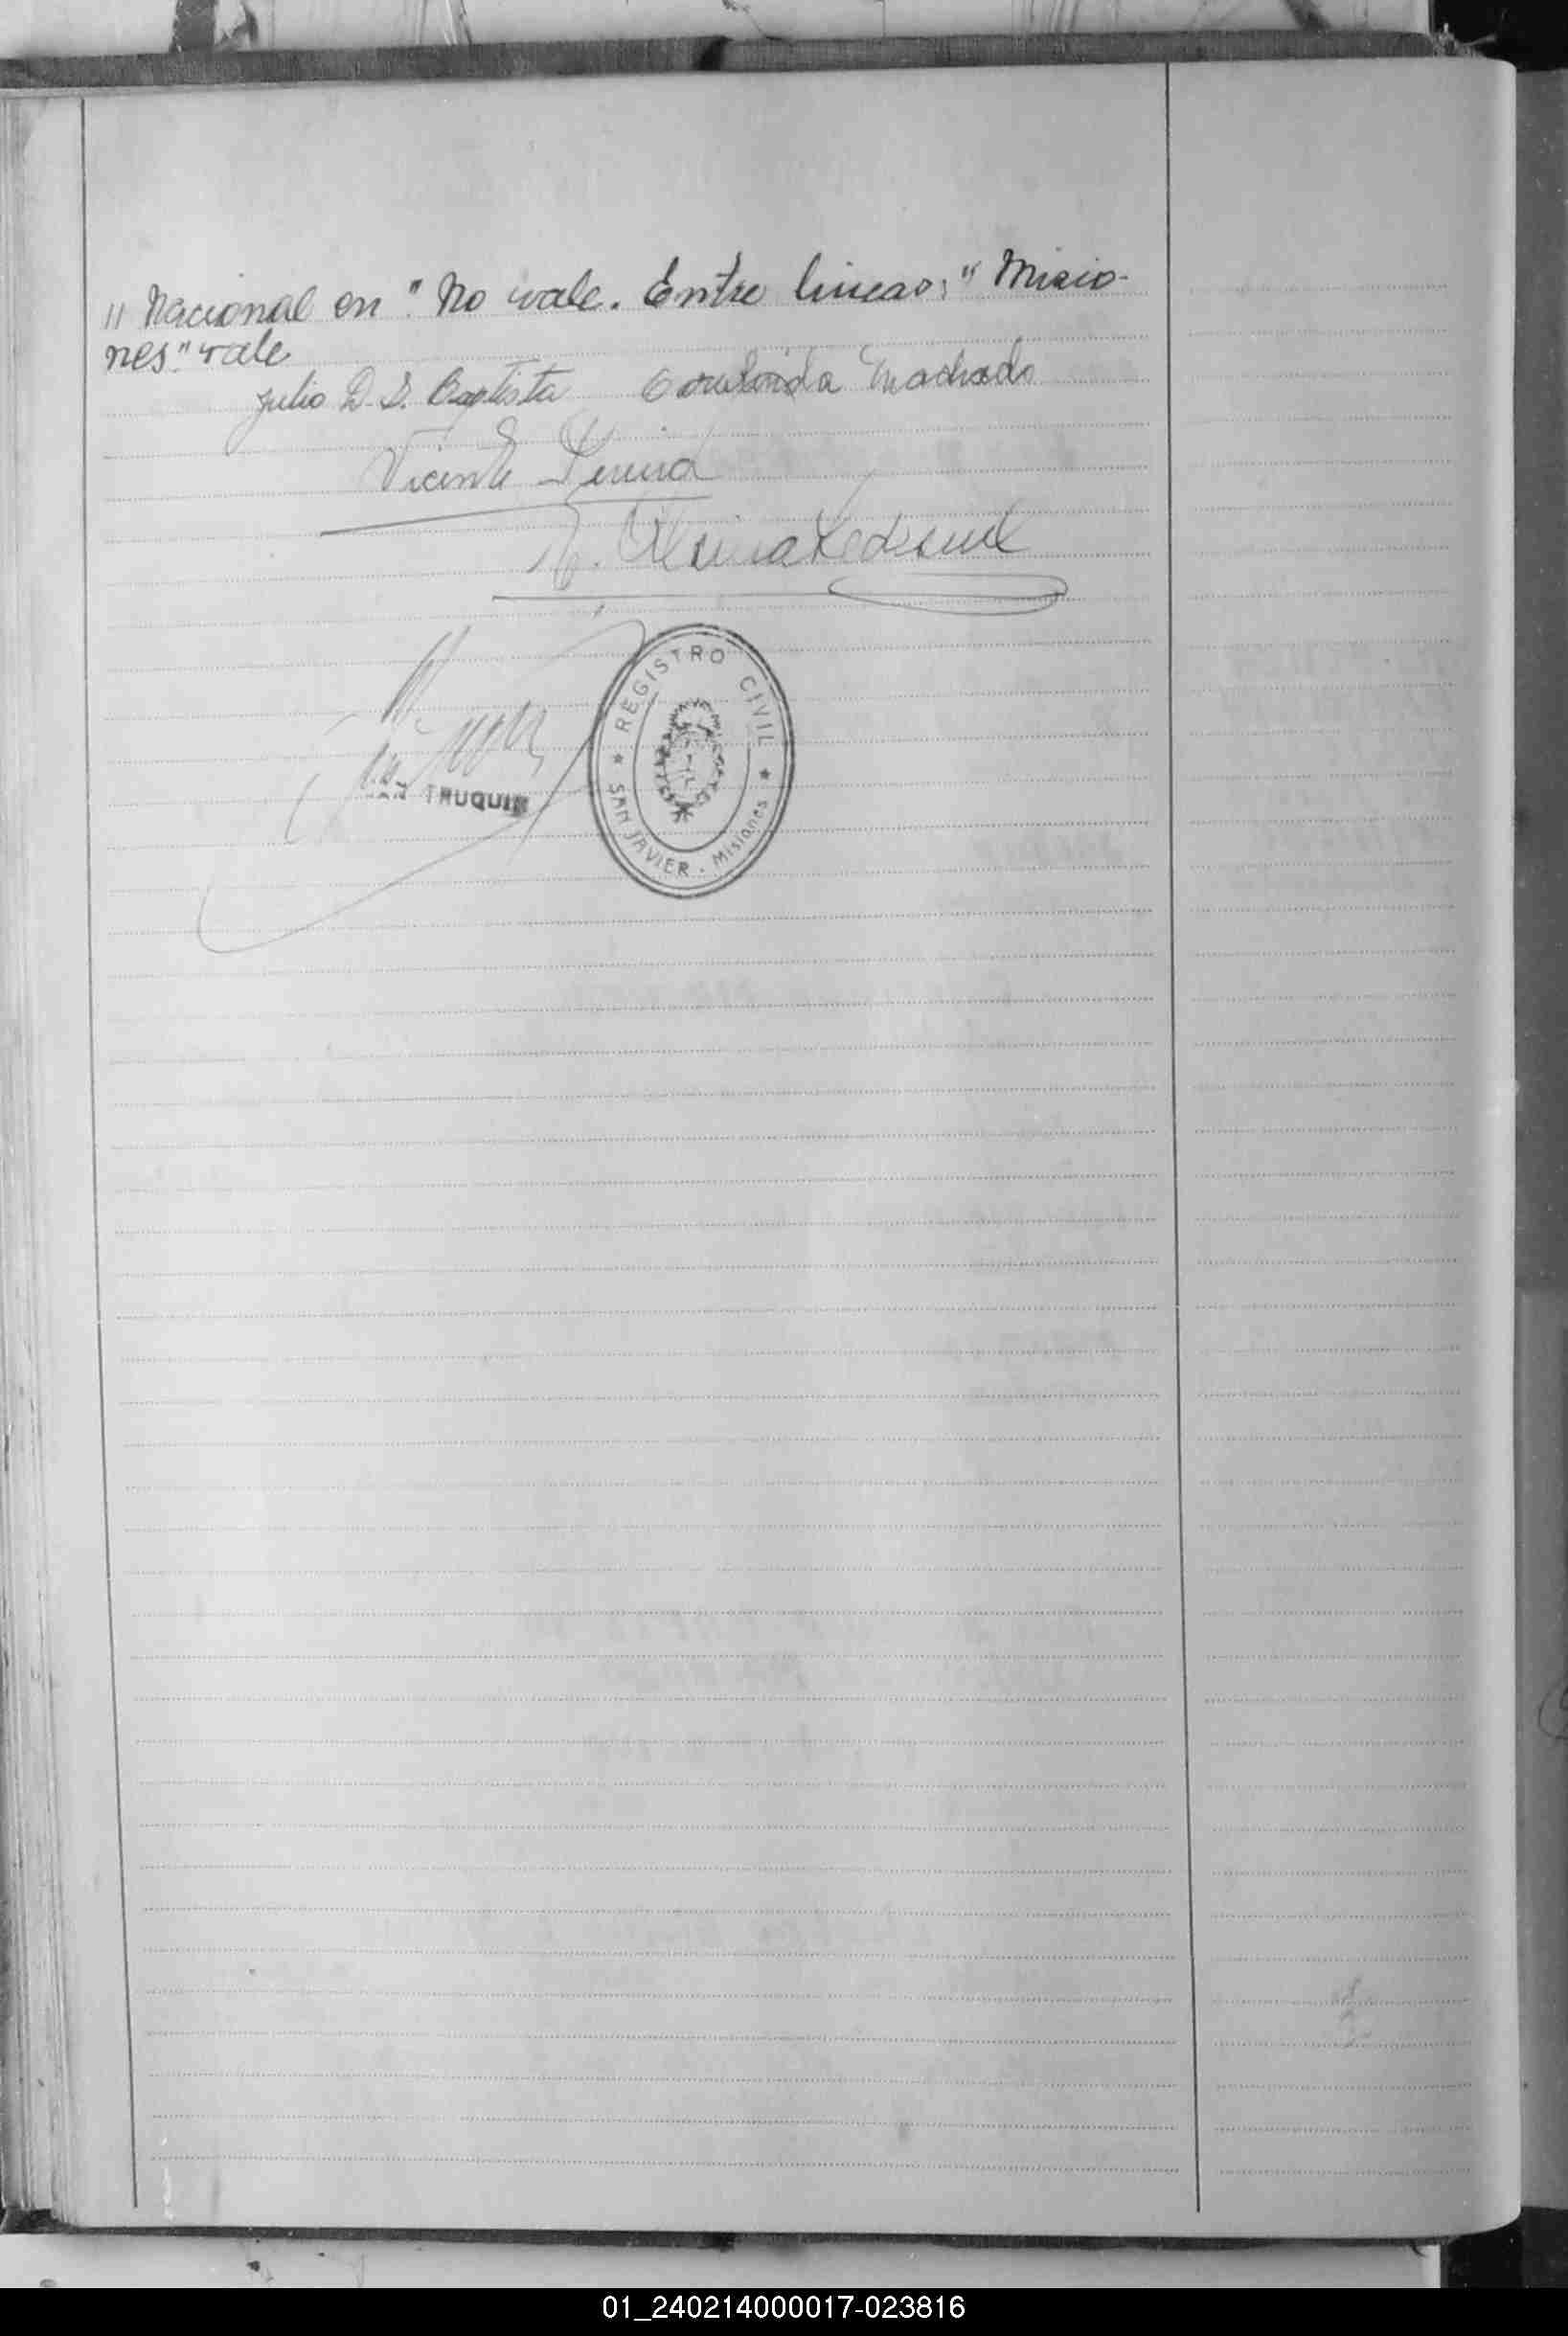 " Nacional en ". No vale. Entre lineas, " Misio-
nes". vale
Julio D. S. Baptista Machado
Vicente
REGISTRO CIVIL
SAN JAVIER - Misiones
TRUQUIN
01_240214000017-023816